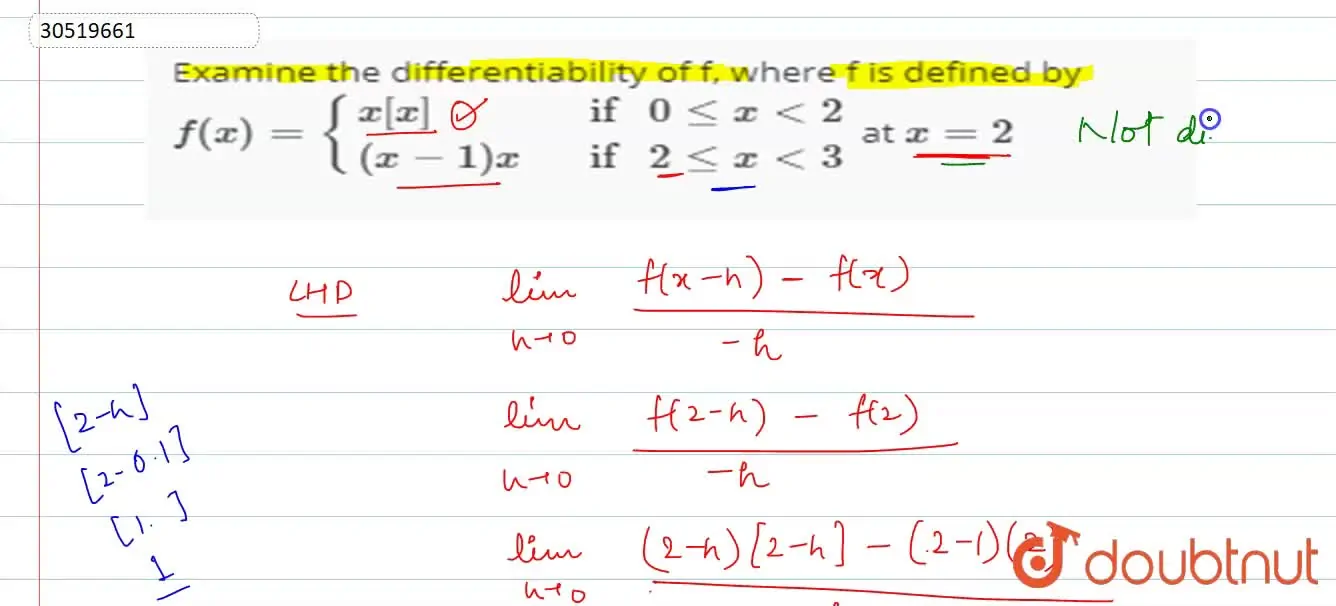 30519661
Examine the differentiability of f, where f is defined by
f(x) = { x[x] if 0 ≤ x < 2
(x − 1)x if 2 ≤ x < 3 at x = 2
Not di
LHD lim h→0 f(x-h) - f(x) / -h
[2-h]
lim h→0 f(2-h) - f(2) / -h
[2-0.1]
[1. ]
1
lim h→0 (2-h)[2-h] - (2-1)(2
doubtnut